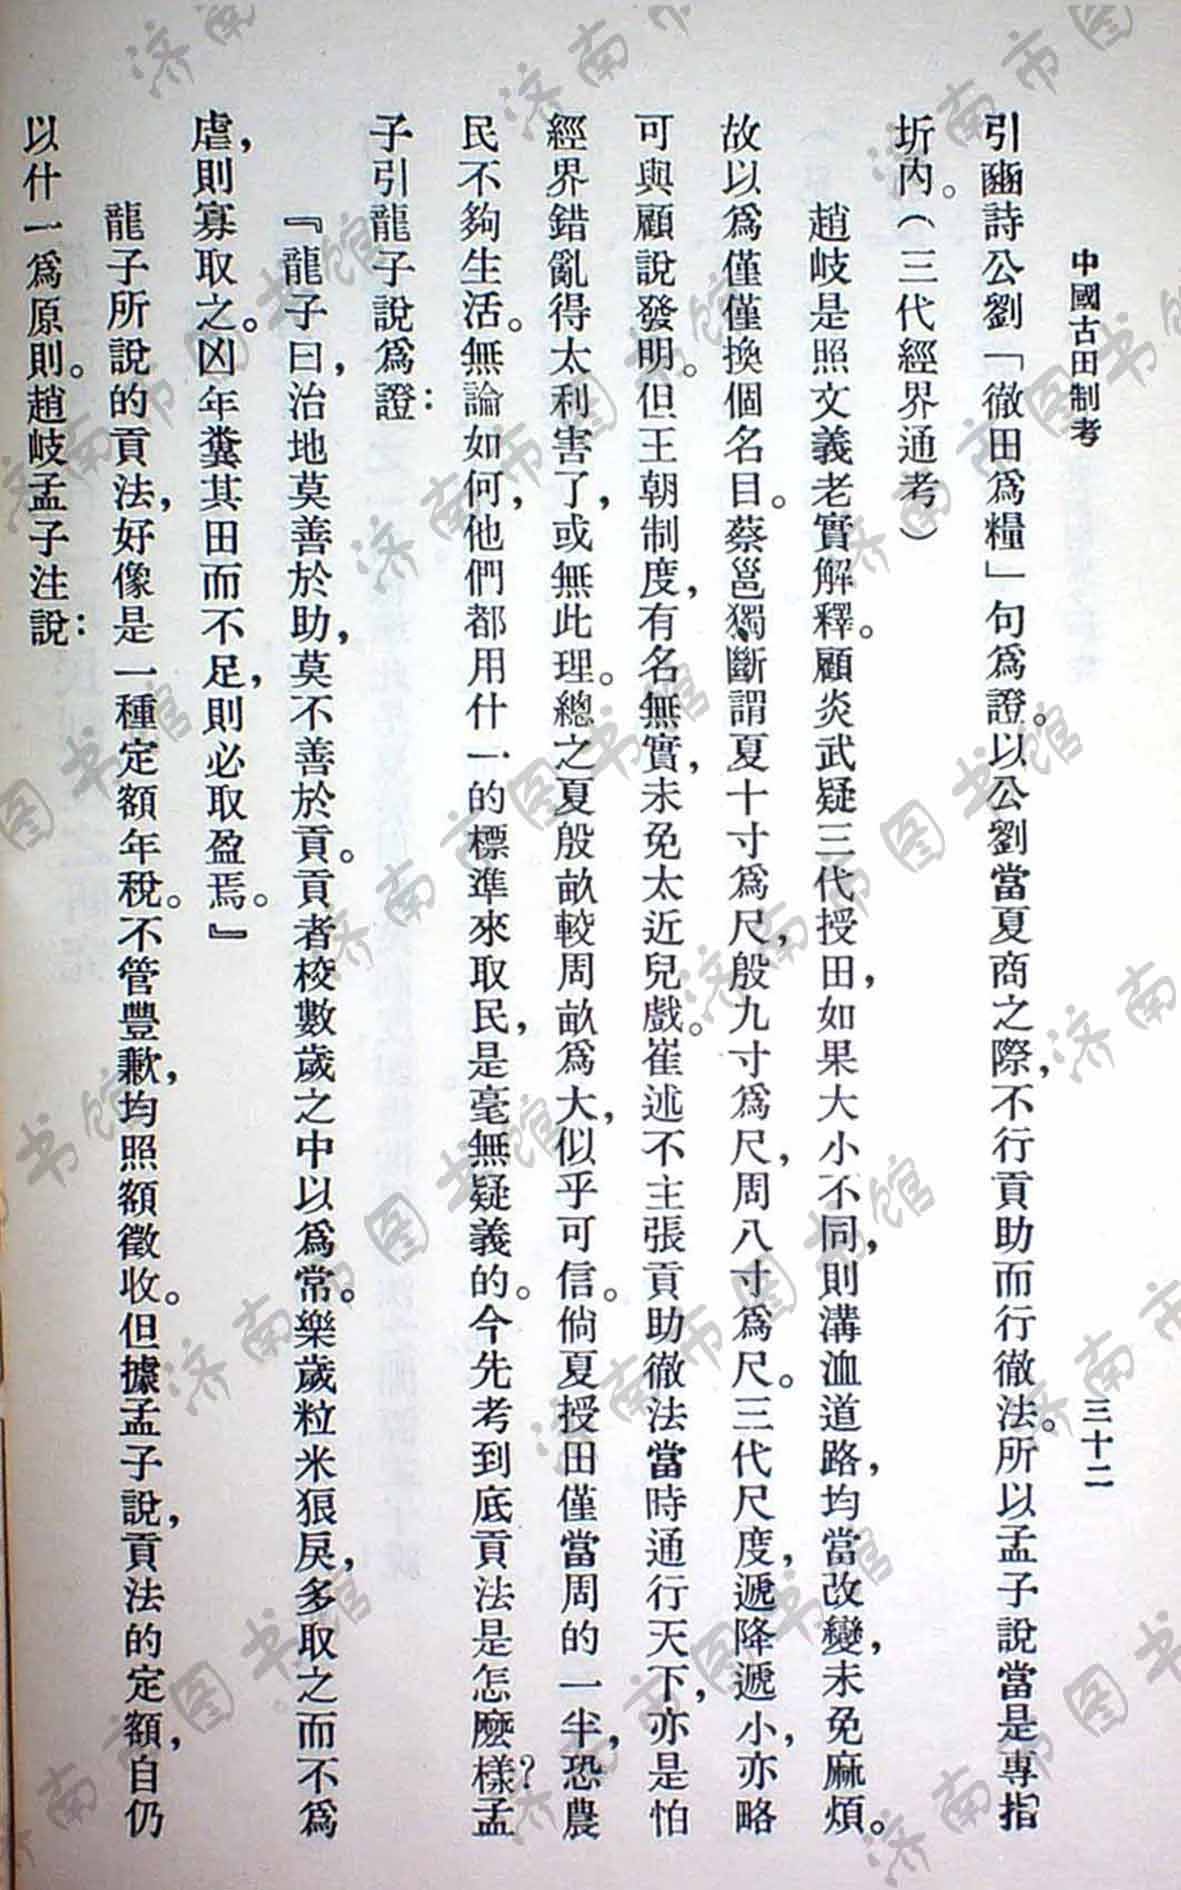 中國古田制考
三十二
引豳詩公劉「徹田爲糧」句爲證。以公劉當夏商之際，不行貢助而行徹法。所以孟子說當是專指
圻內。（三代經界通考）
趙岐是照文義老實解釋。顧炎武疑三代授田，如果大小不同，則溝洫道路，均當改變，未免麻煩。
故以爲僅僅換個名目。蔡邕獨斷謂夏十寸爲尺，殷九寸爲尺，周八寸爲尺。三代尺度，遞降遞小，亦略
可與顧說發明。但王朝制度，有名無實，未免太近兒戲。崔述不主張貢助徹法當時通行天下，亦是怕
經界錯亂得太利害了，或無此理。總之夏殷畝較周畝爲大，似乎可信。倘夏授田僅當周的一半，恐農
民不夠生活。無論如何，他們都用什一的標準來取民，是毫無疑義的。今先考到底貢法是怎麼樣？孟
子引龍子說爲證：
『龍子曰，治地莫善於助，莫不善於貢。貢者校數歲之中以爲常。樂歲粒米狼戾，多取之而不爲
虐，則寡取之。凶年糞其田而不足，則必取盈焉。』
龍子所說的貢法，好像是一種定額年稅。不管豐歉，均照額徵收。但據孟子說，貢法的定額，自仍
以什一爲原則。趙岐孟子注說：
济南市图书馆